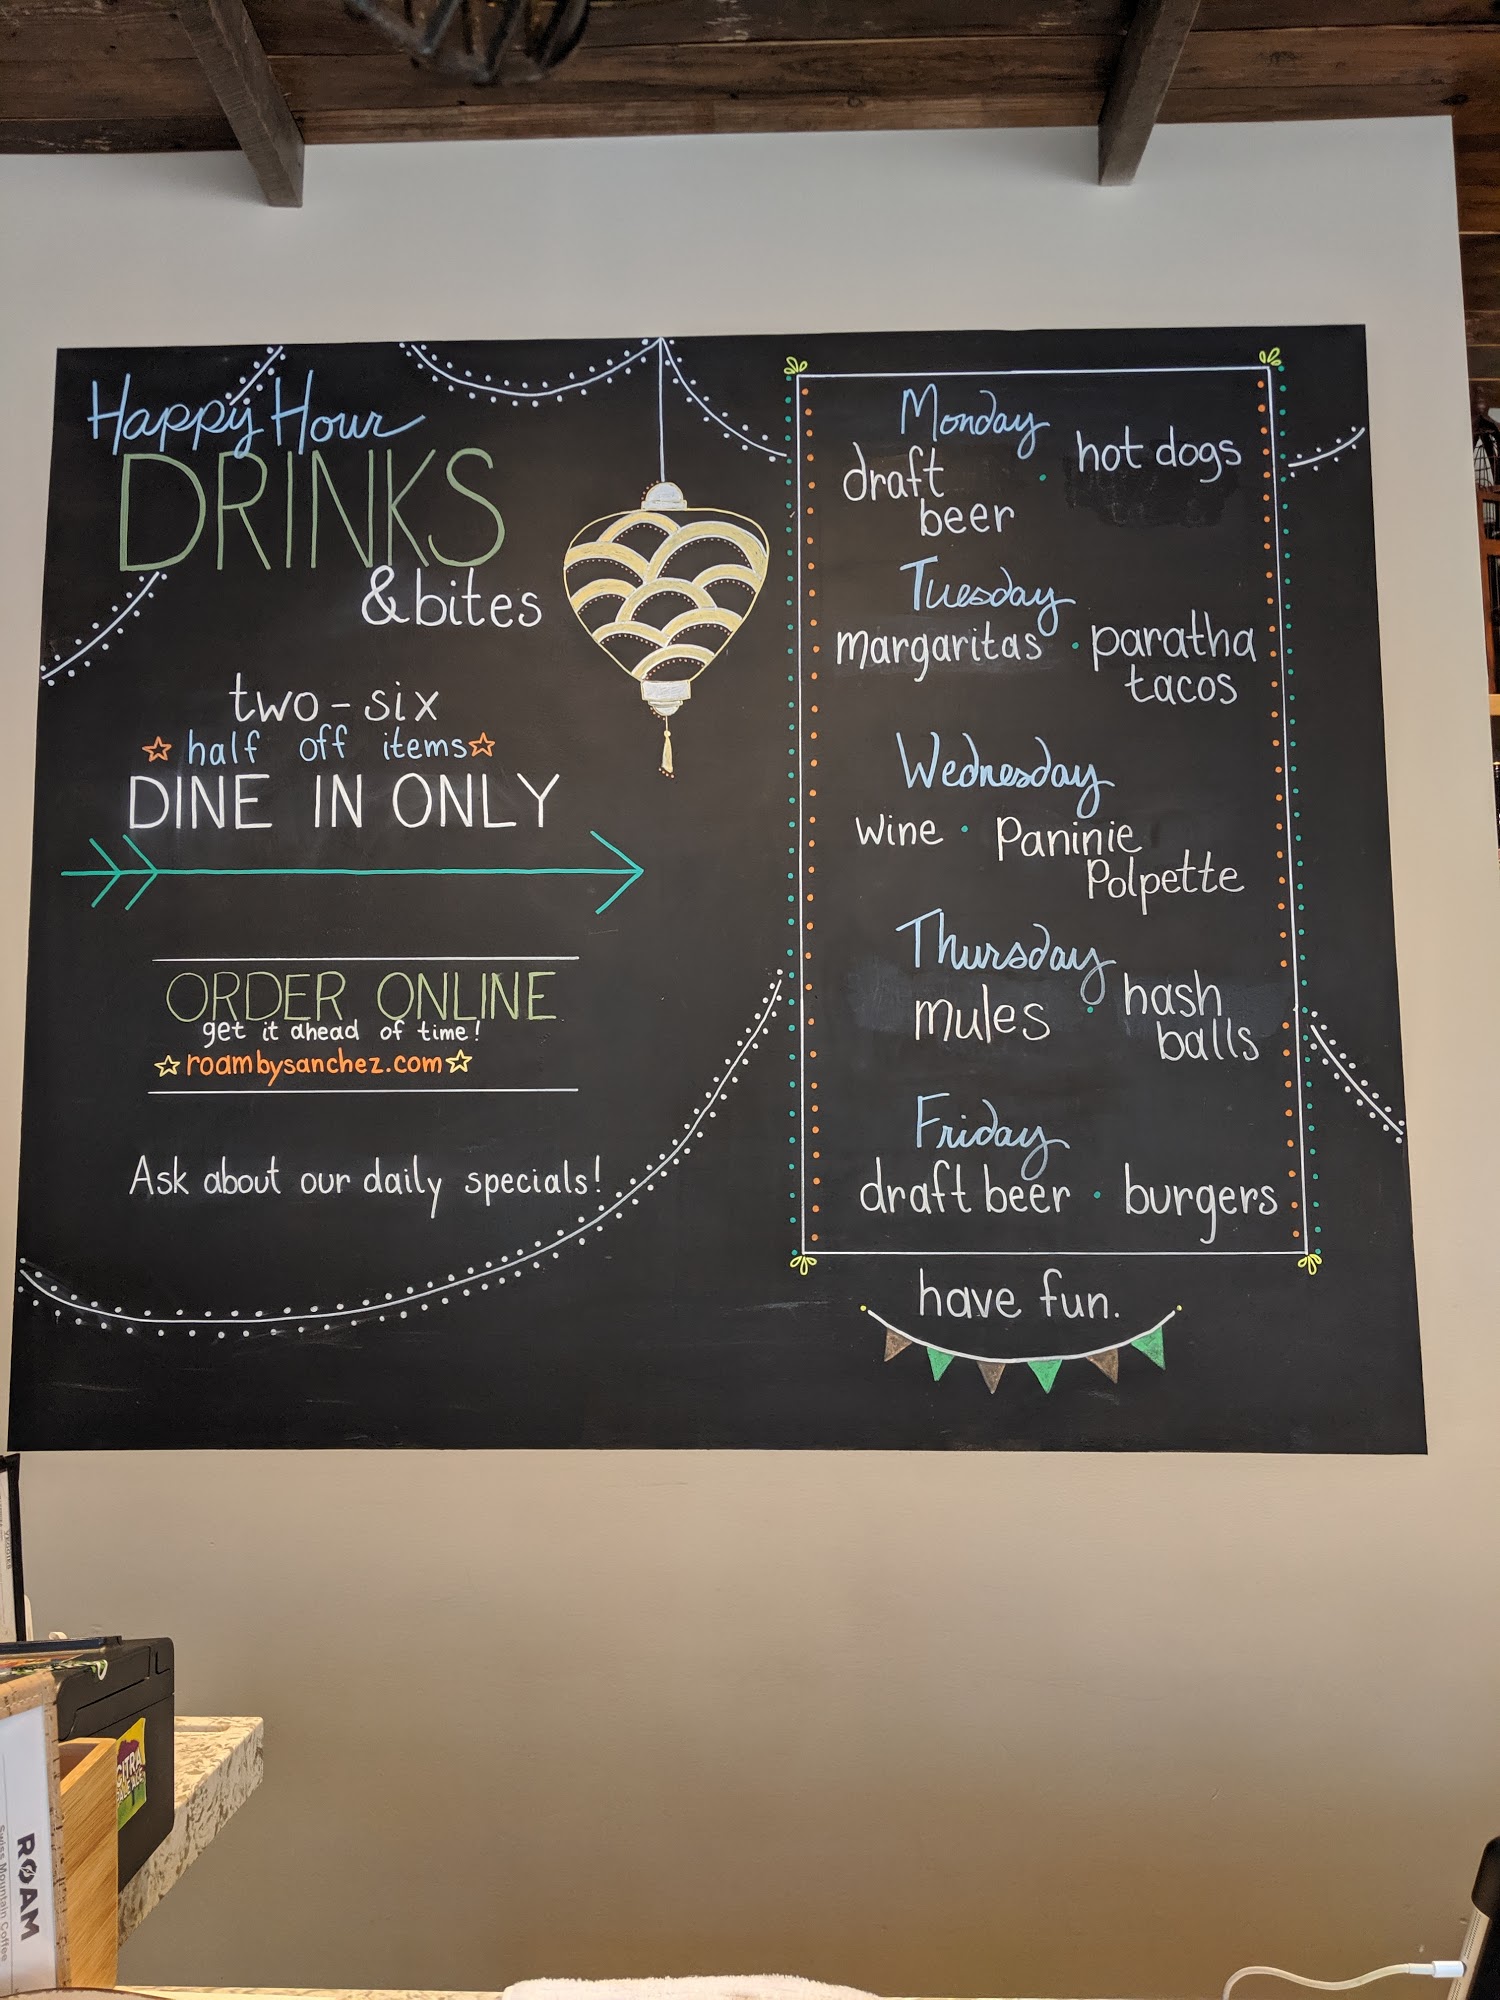 Happy Hour
DRINKS
& bites
two-six
half off items
DINE IN ONLY
ORDER ONLINE
get it ahead of time!
roambysanchez.com
Ask about our daily specials!
Monday
draft beer · hot dogs
Tuesday
margaritas · paratha tacos
Wednesday
wine · Paninie Polpette
Thursday
mules · hash balls
Friday
draft beer · burgers
have fun.
CITRA
ROAM
Swiss Mountain Coffee